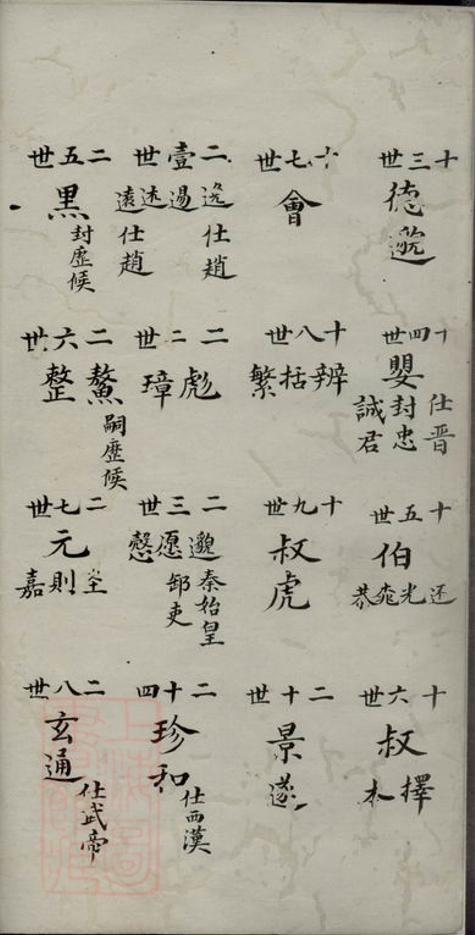 十三世
德邈
十四世
嬰
仕晋
封忠
誠君
十五世
伯
还光恭
十六世
叔
擇本
十七世
會
十八世
辨括繁
十九世
叔虎
二十世
景遂
二壹世
逸仕趙
逿
遠仕趙
二二世
彪璋
二三世
邈愿慤
秦始皇
二十四
珍和
仕西漢
二五世
黑
封歷候
二六世
鰲整
嗣歷候
二七世
元
則嘉
二八世
玄通
仕武帝
上海圖書館藏